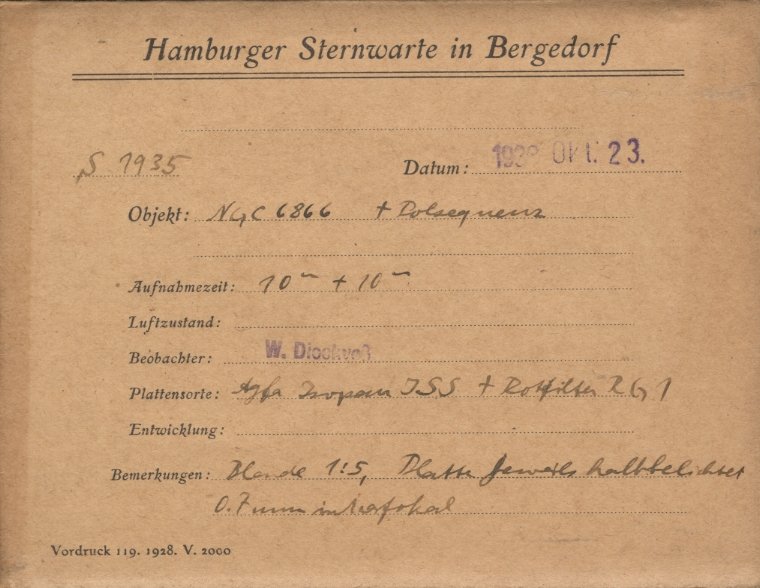 Hamburger Sternwarte in Bergedorf
S 1935
Datum: 1938 OKT. 23.
Objekt: NGC 6866 + Polsequenz
Aufnahmezeit: 10m + 10m
Luftzustand:
Beobachter: W. Dieckvoß
Plattensorte: Agfa Isopan ISS + Rotfilter RG 1
Entwicklung:
Bemerkungen: Blende 1:5, Platte jeweils halbbelichtet
0.7 mm intrafokal
Vordruck 119. 1928. V. 2000